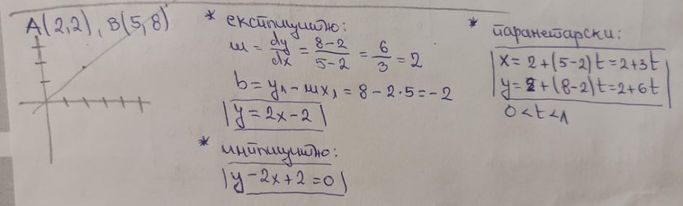 A(2,2), B(5,8)
* експлицитно:
m = dy/dx = 8-2/5-2 = 6/3 = 2
b = y₁ - mx₁ = 8 - 2·5 = -2
|y = 2x - 2|
* имплицитно:
|y - 2x + 2 = 0|
* параметарски:
x = 2 + (5-2)t = 2+3t
y = 2 + (8-2)t = 2+6t
0 < t < 1